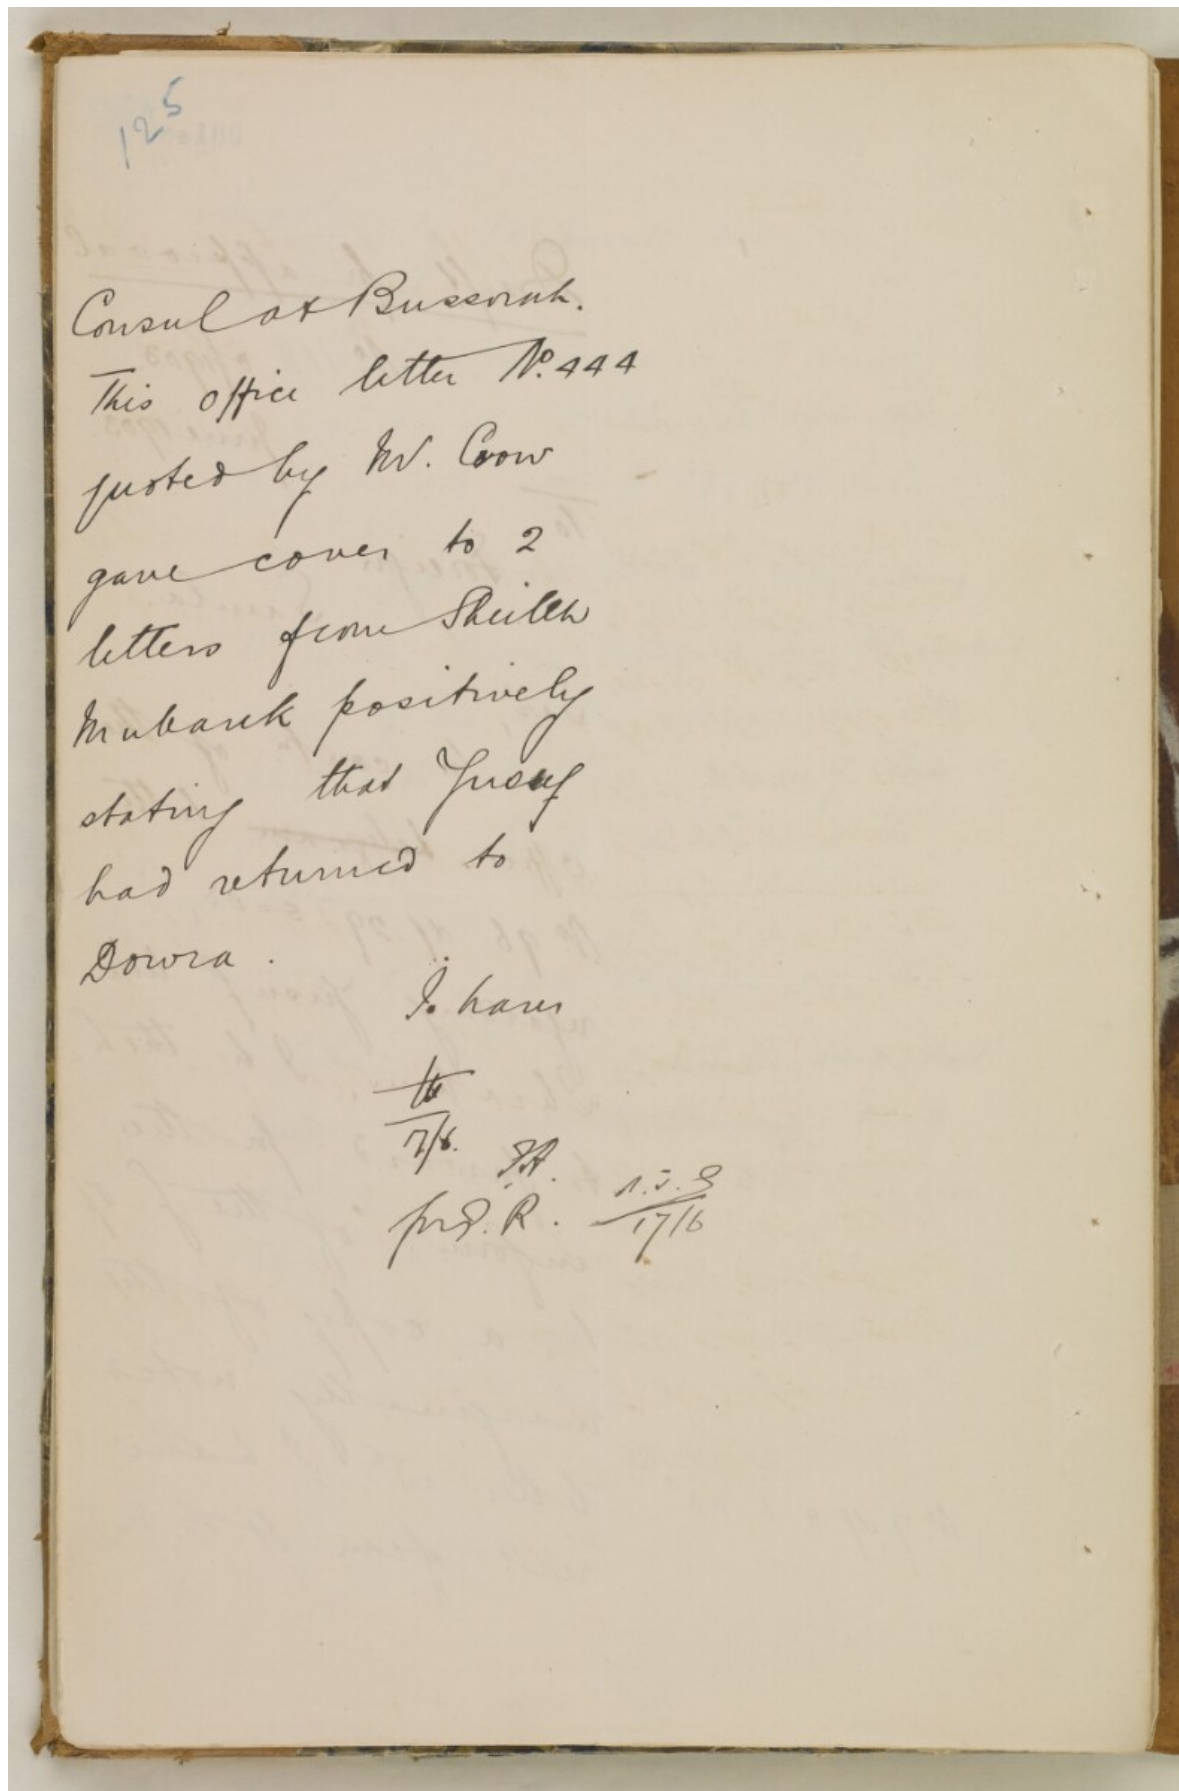 125
Consul at Bussorah.
This office letter No. 444
quoted by Mr. Crow
gave cover to 2
letters from Sheikh
Mubarek positively
stating that Yusuf
had returned to
Dowra.
I. have
7/6.
for R.
17/6